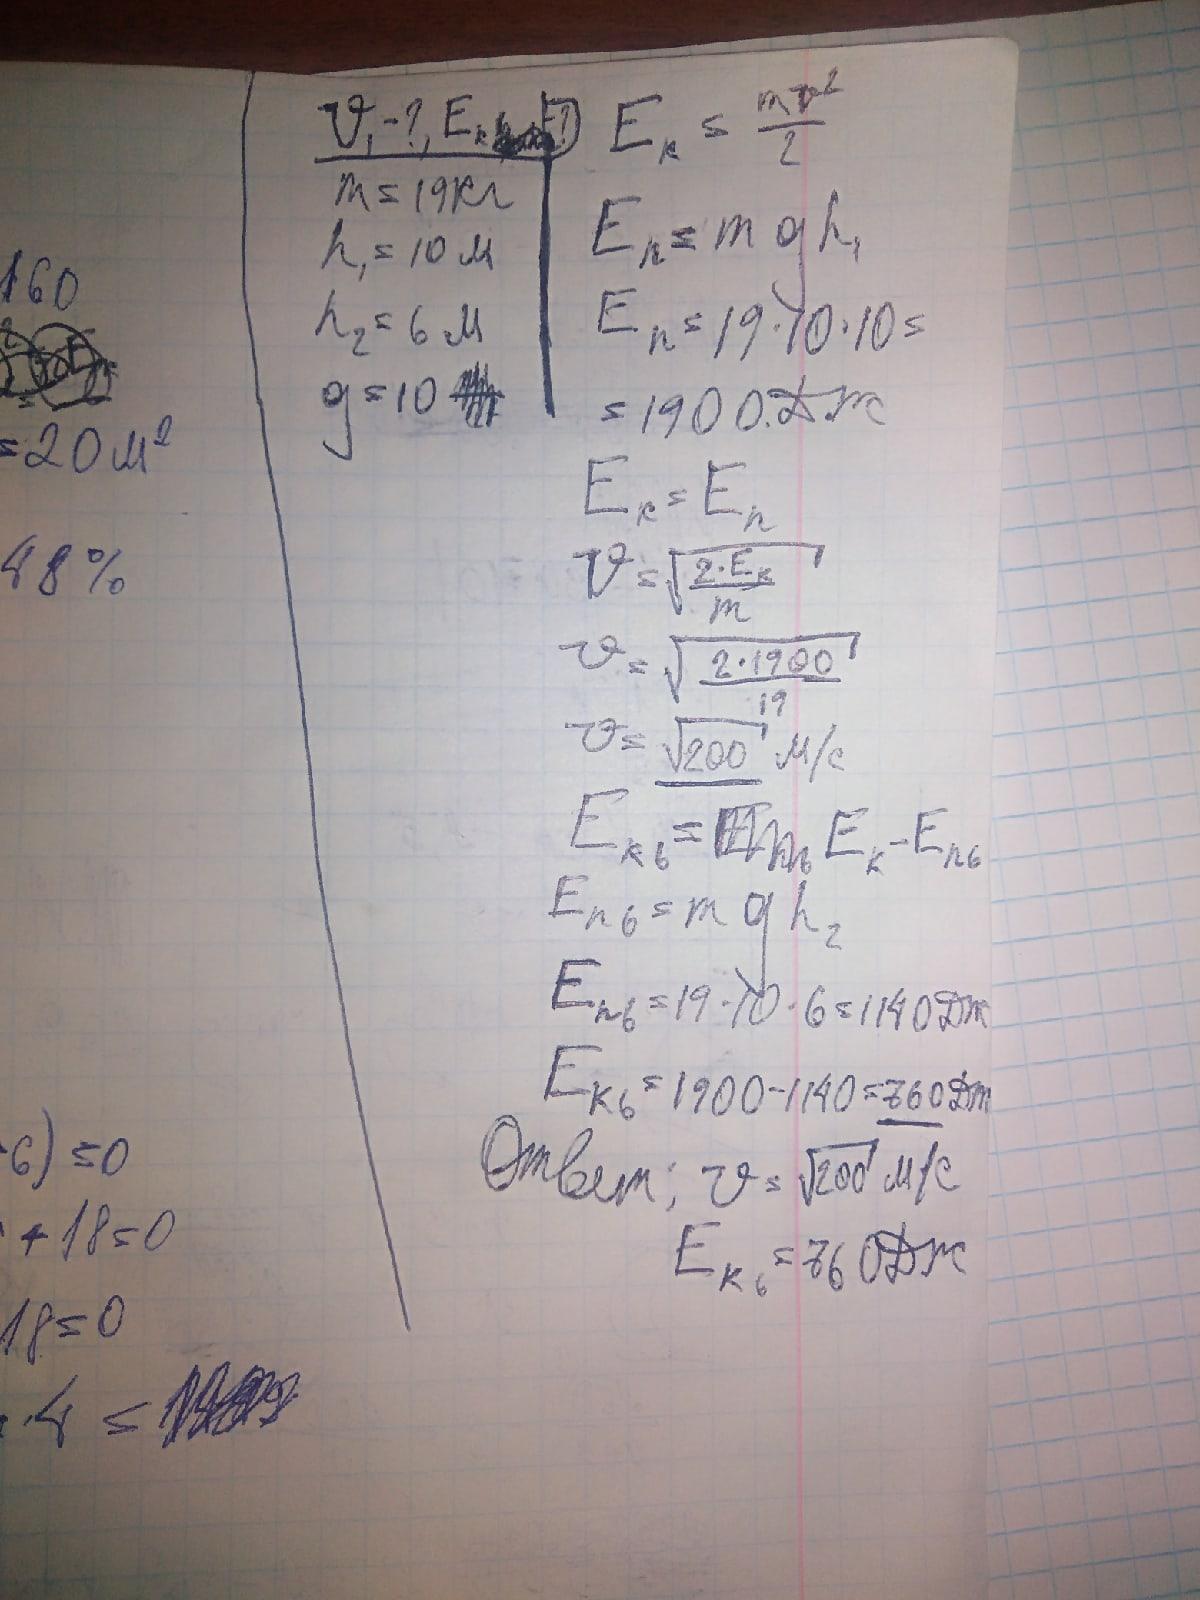 160
=20 м²
48%
-6)=0
+18=0
18=0
·4=
v₁-?, Eк ?
m=19кг
h₁=10 м
h₂=6 м
g=10
Eк = mv²/2
Eп = m g h₁
Eп = 19·10·10=
=1900 Дж
Eк = Eп
v=√(2·Eк/m)
v=√(2·1900/19)
v=√200 м/с
Eк6 = Eк-Eп6
Eп6 = m g h₂
Eп6=19·10·6=1140Дж
Eк6=1900-1140=760Дж
Ответ: v=√200 м/с
Eк6=760Дж